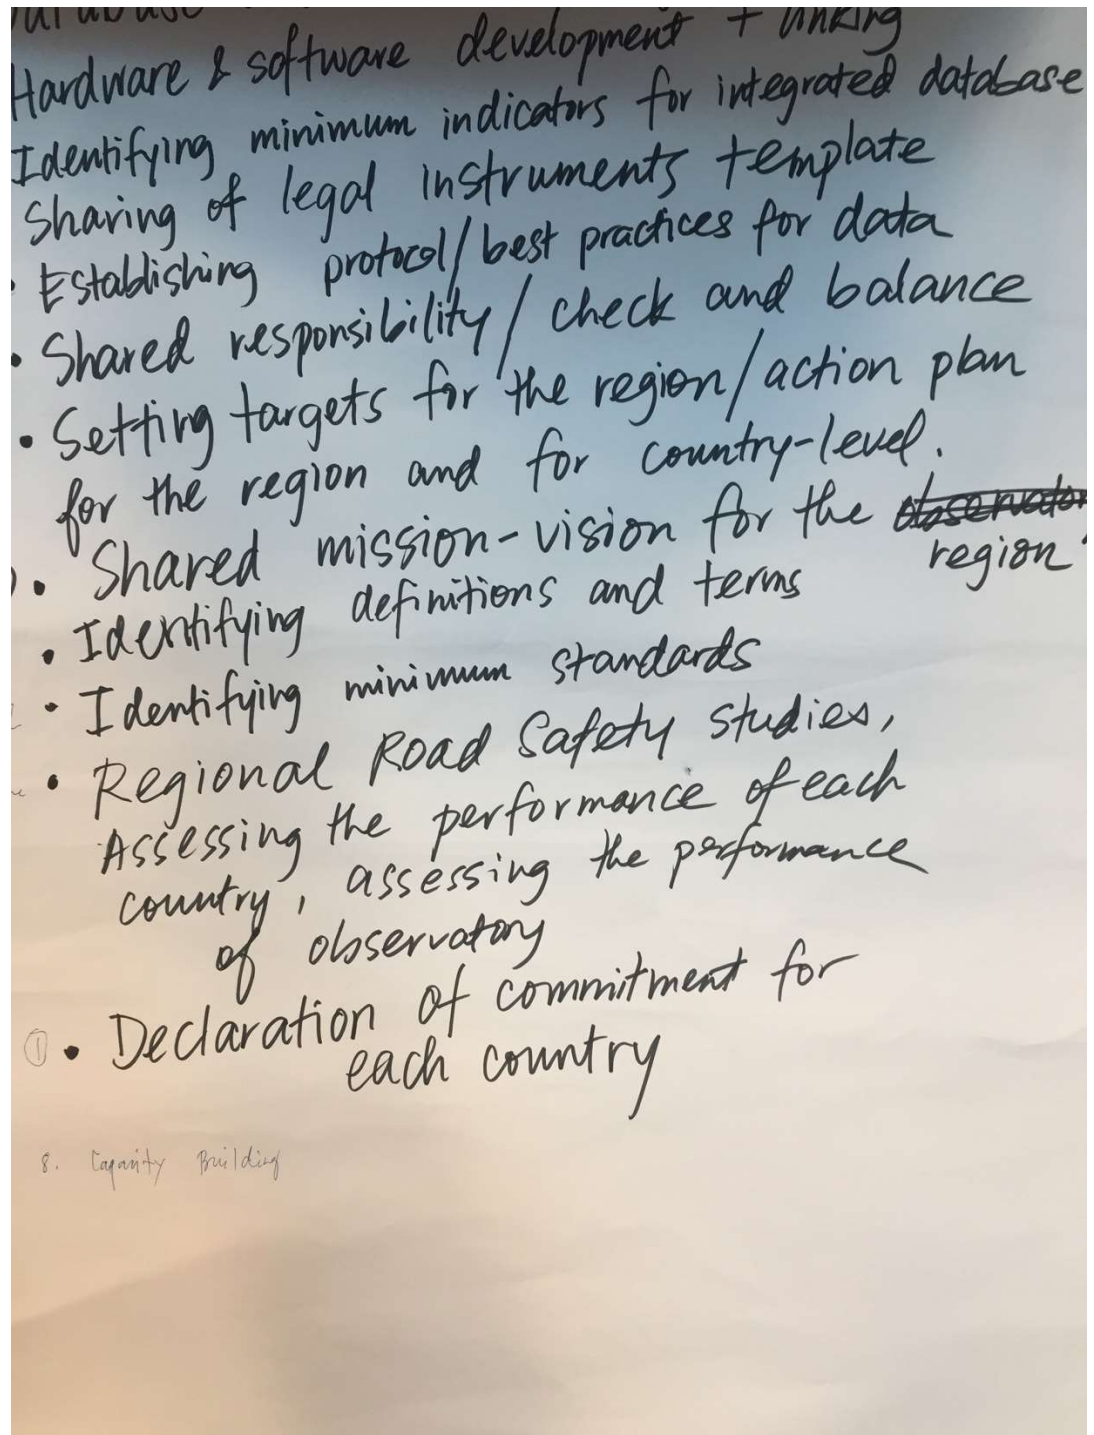 Database
Hardware & software development + linking
Identifying minimum indicators for integrated database
Sharing of legal instruments template
• Establishing protocol/best practices for data
• Shared responsibility/check and balance
• Setting targets for the region/action plan
for the region and for country-level.
• Shared mission-vision for the observator
region
• Identifying definitions and terms
• Identifying minimum standards
• Regional Road Safety studies,
Assessing the performance of each
country, assessing the performance
of observatory
① • Declaration of commitment for
each country
8. Capacity Building